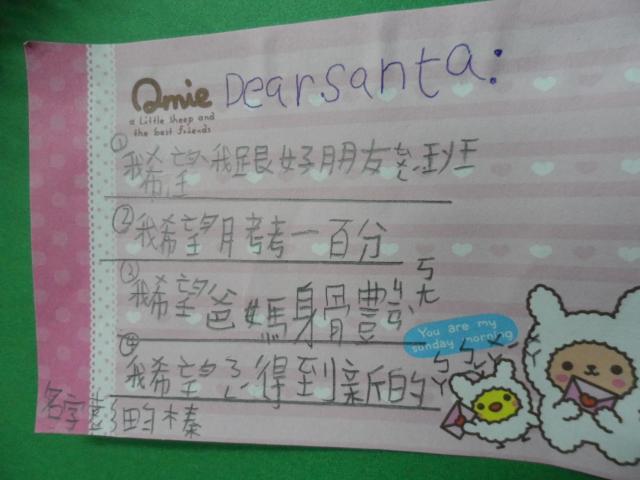 Dear santa:
Amie
a little sheep and
the best friends
①我希望我跟好朋友班
②我希望月考考一百分
③我希望爸媽身體ㄎㄤ
You are my
sunday morning
④我希望得到新的
名字彭畇榛